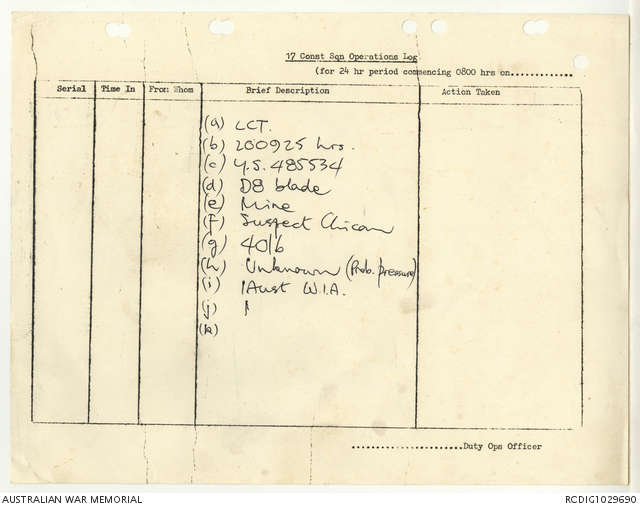 17 Const Sqn Operations Log
(for 24 hr period commencing 0800 hrs on.............
Serial Time In From Whom Brief Description Action Taken
(a) LCT.
(b) 200925 hrs.
(c) Y.S. 485534
(d) D8 blade
(e) Mine
(f) Suspect Chicom
(g) 40lb
(h) Unknown (Prob. pressure)
(i) 1 Aust W.I.A.
(j) 1
(k)
......................Duty Ops Officer
AUSTRALIAN WAR MEMORIAL
RCDIG1029690